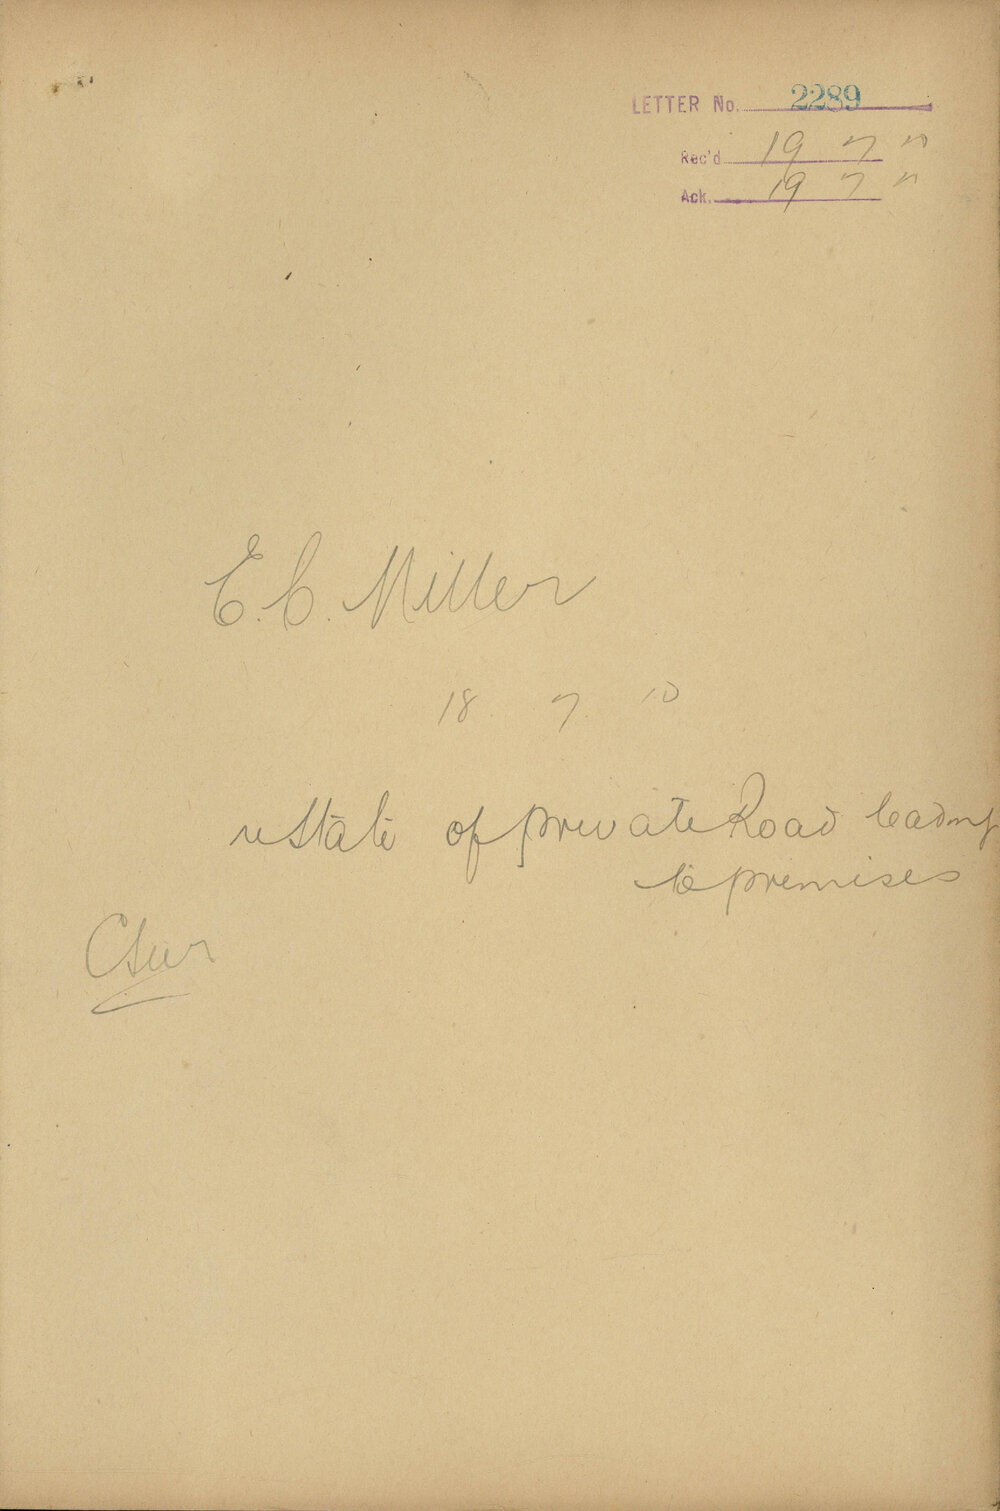 LETTER No. 2289
Rec'd 19 7 10
Ack. 19 7
E. C. Miller
18 7 10
re State of private Road leading
to premises